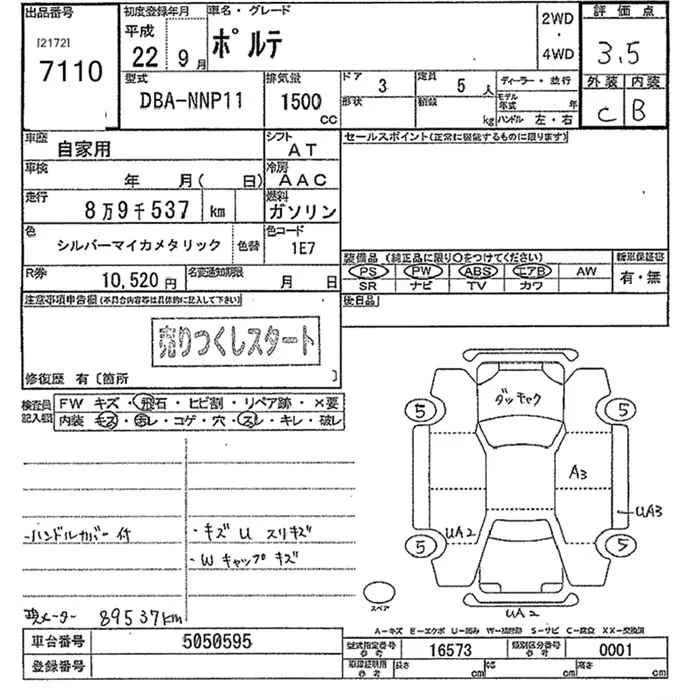 出品番号
[21721
7110
初度登録年月
平成
22 9月
車名・グレード
ポルテ
2WD
・
4WD
評価点
3.5
外装 内装
C B
型式
DBA-NNP11
排気量
1500
cc
ドア 3
定員 5 人
形状
kg
ディーラー・並行
モデル年式 年
ハンドル 左・右
車歴
自家用
シフト
AT
車検
年 月( 日)
冷房
AAC
走行
8万9千537 km
燃料
ガソリン
色
シルバーマイカメタリック
色替
色コード
1E7
R券
10,520円
名変通知期限
月 日
セールスポイント(正常に機能するものに限ります)
装備品 (純正品に限り○をつけてください)
PS PW ABS エアB AW
SR ナビ TV カワ
新車保証書
有・無
後日品
注意事項申告欄(不具合内容等は具体的に記入して下さい)
売りつくしスタート
修復歴 有〔箇所 〕
検査員記入欄
FW キズ・飛石・ヒビ割・リペア跡・×要
内装 キズ・汚レ・コゲ・穴・スレ・キレ・破レ
-ハンドルカバー付
・キズ U スリキズ
・W キャップキズ
メーター 89537km
ダッキャク
5 5
A3
UA3
UA2
5 5
スペア
UA2
A-キズ E-エクボ U-凹み W-補修跡 S-サビ C-腐食 XX-交換済
車台番号
5050595
登録番号
型式指定番号
参考
16573
類別区分番号
参考
0001
長さ cm
幅 cm
高さ cm